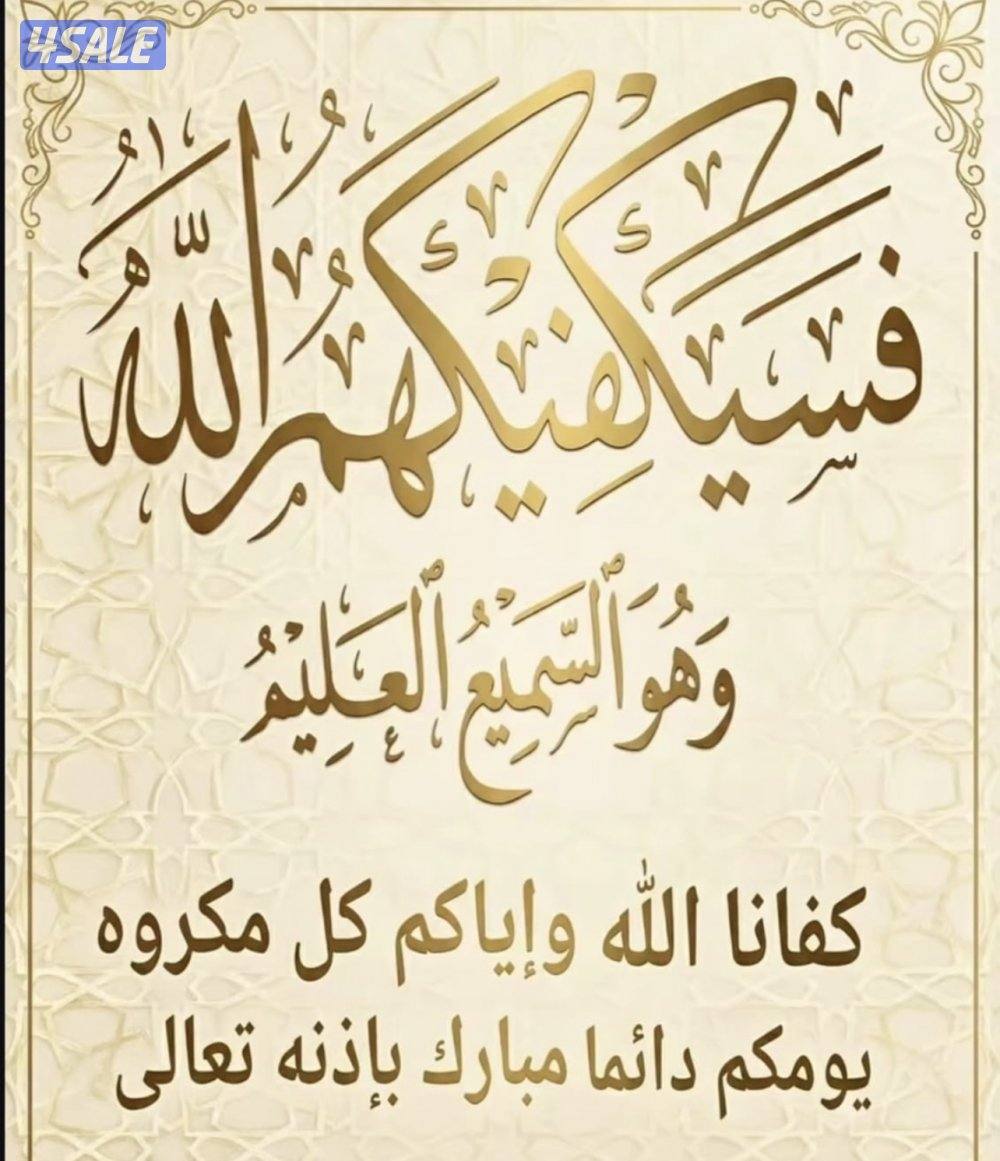 4SALE
فَسَيَكْفِيكَهُمُ اللَّهُ
وَهُوَ ٱلسَّمِيْعُ ٱلْعَلِيْمُ
كفانا الله وإياكم كل مكروه
يومكم دائما مبارك بإذنه تعالى